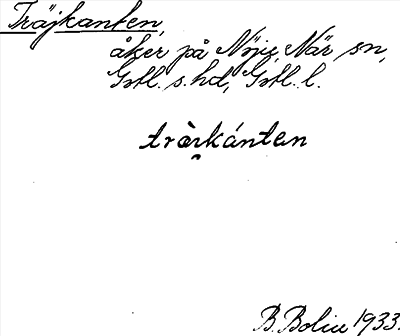 Träjkanten,
åker på Nyjg, När sn,
Gotl. s. hd, Gotl. l.
träi̯kánten
B. Bolin 1933.